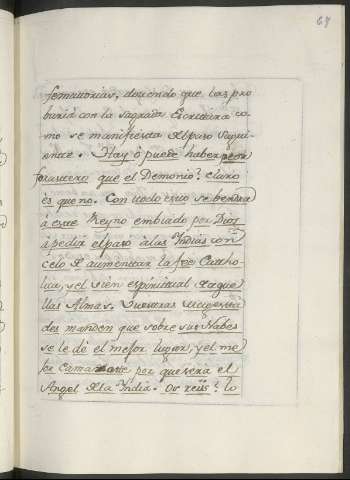 67
femutorias, doviendo que las pro
buria con la Sagrada Escritura co
mo se manifiesta el paso sigui-
ente. Hay ò puede haber peor
forastero que el Demonio? claro
ès que no. Con todo esto se bendrá
á este Reyno embiado por Dios
á pedir el paso à las Indias con
celo de aumentar la fee Catho-
lica, y el bien espiritual de aque
llas Almas. Vuestras
des manden que sobre sus Nabes
se le dè el mejor lugar, y el me
jor Camarote por que será el
Angel de la India. Os reiis? lo